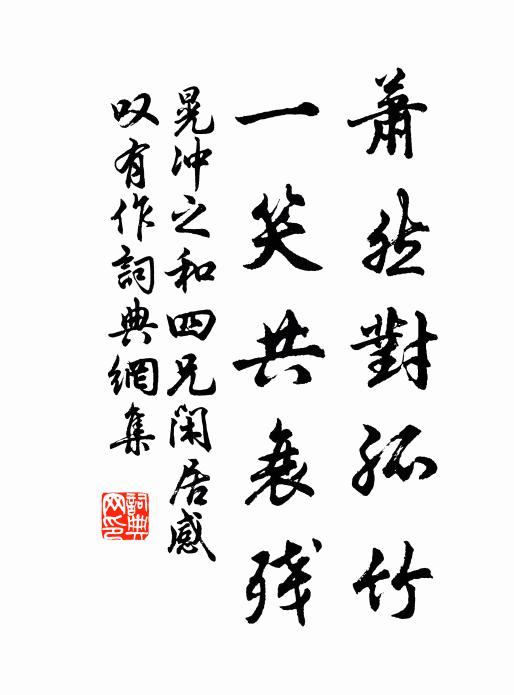 蕭然對孤竹
一笑共衰殘
晃沖之和四兄閑居感
叹有作詞典網集
詞典網印